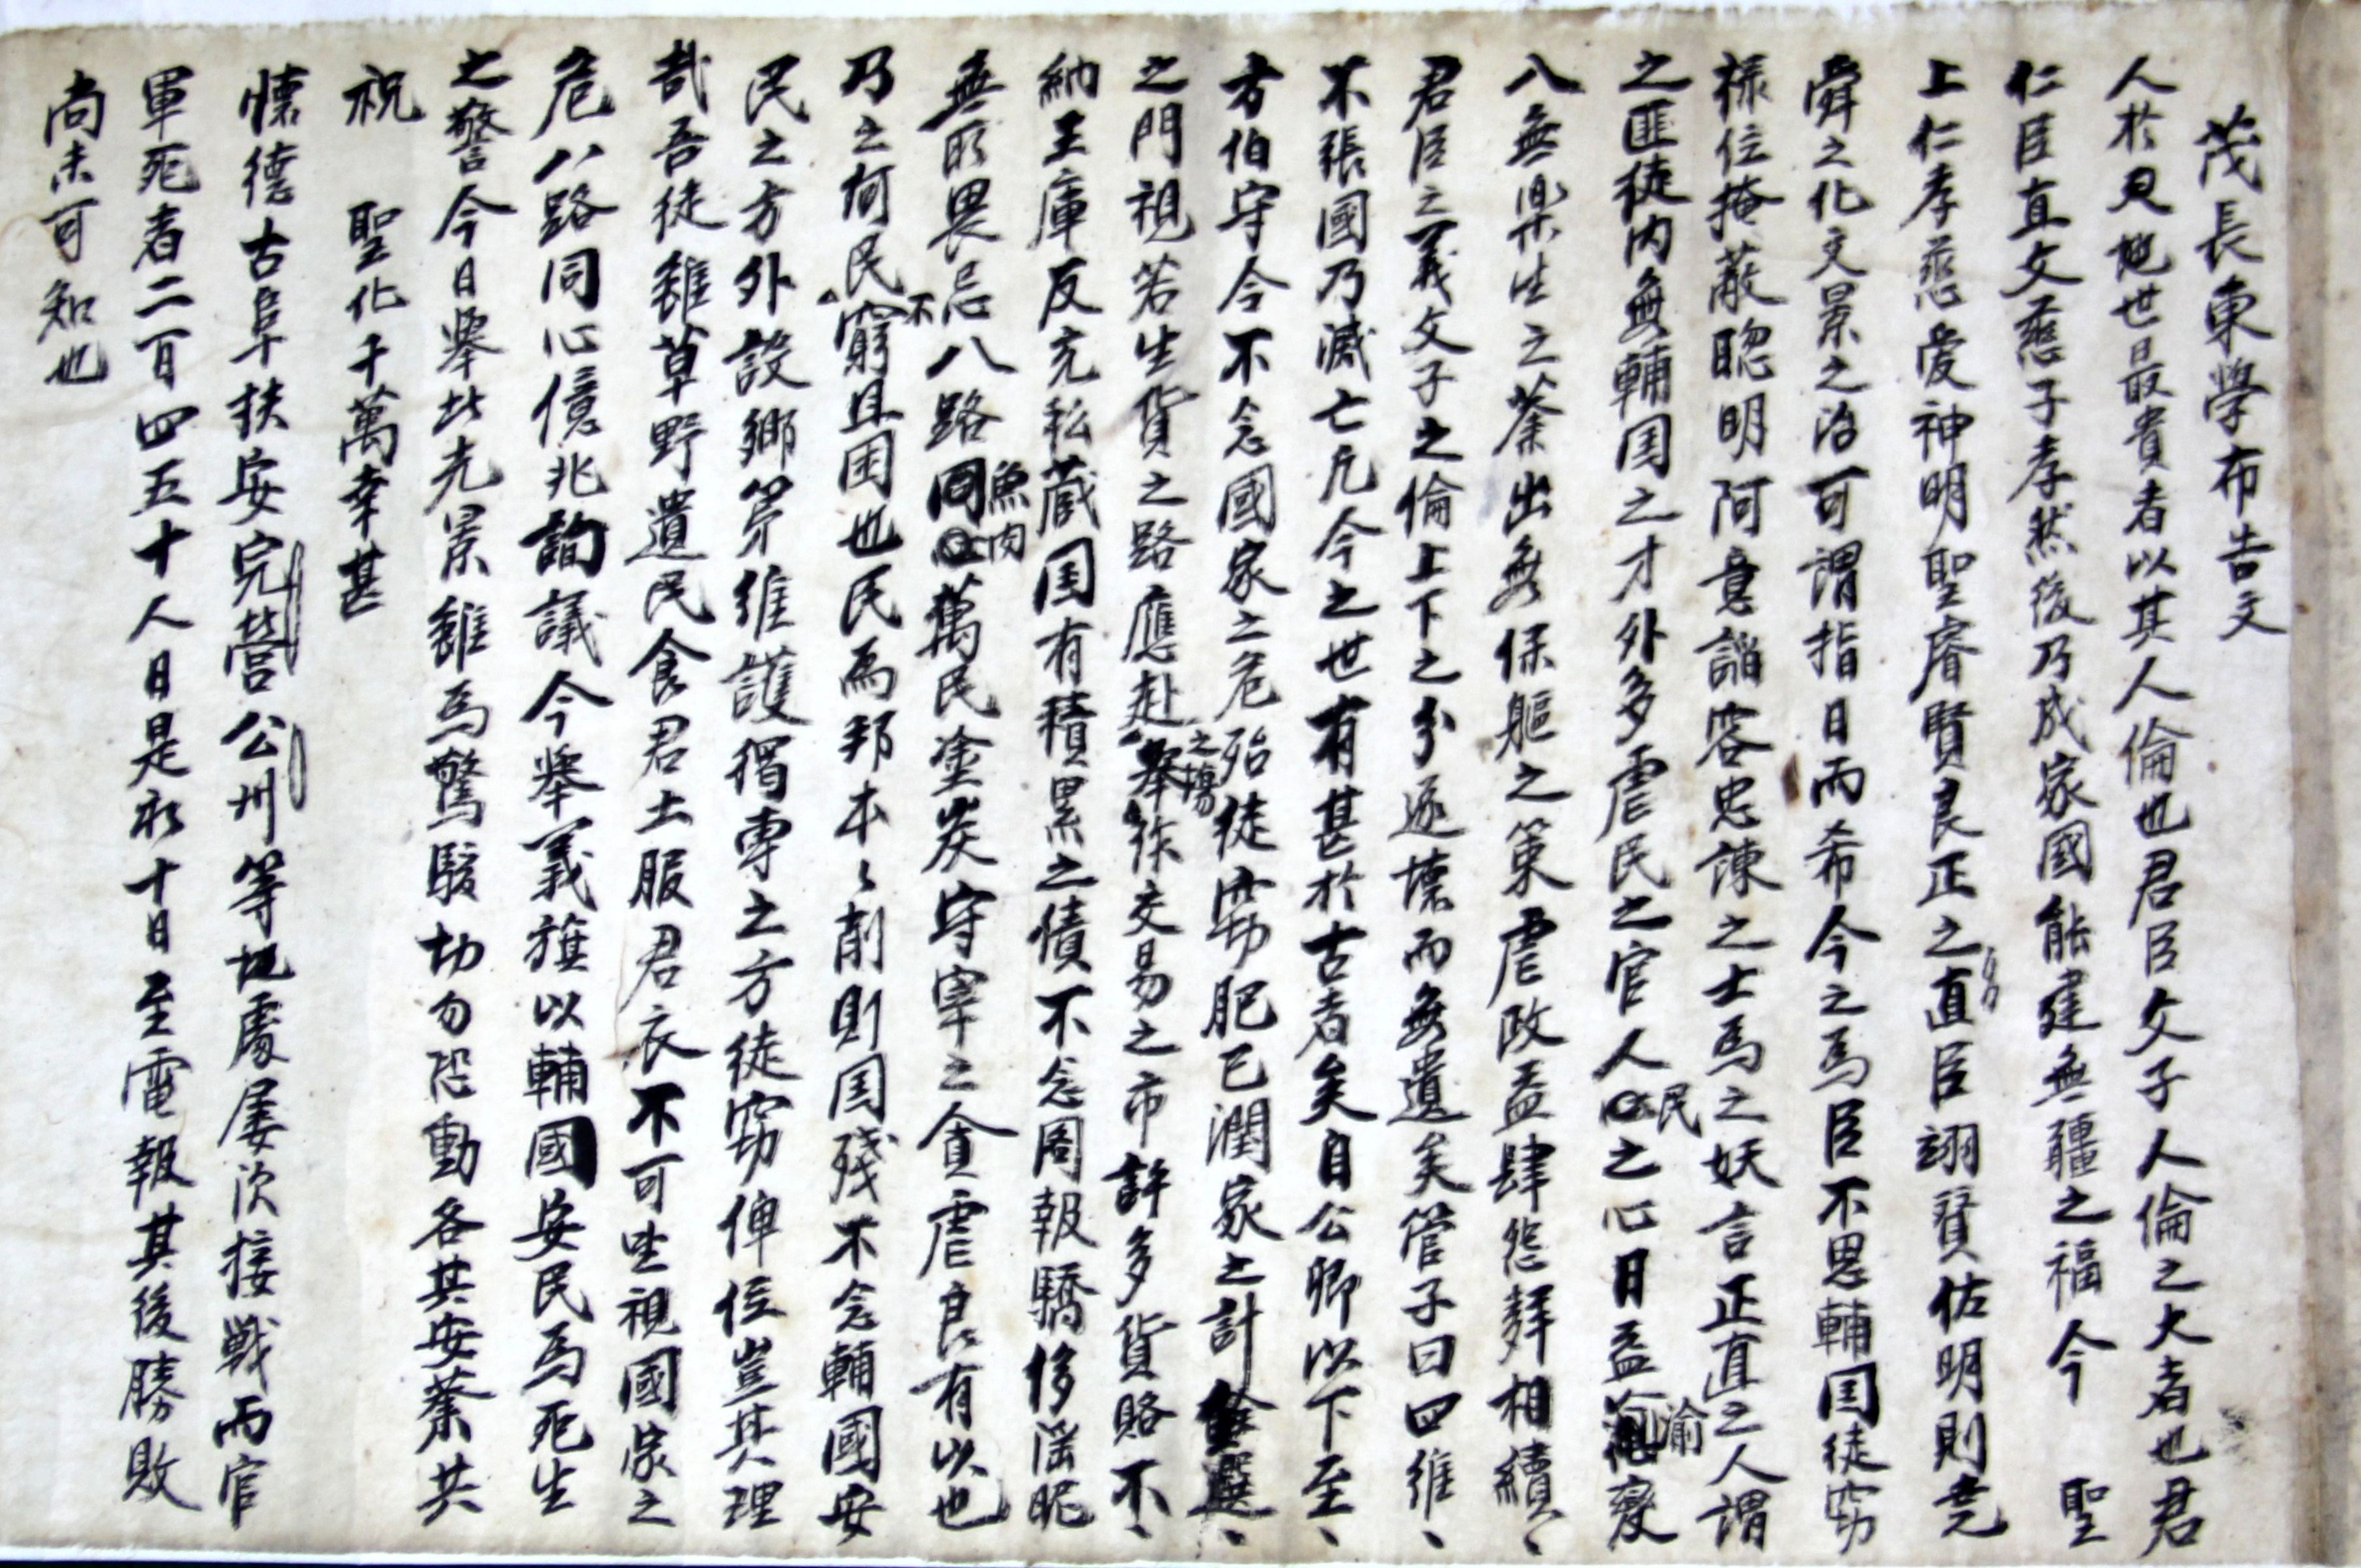 茂長東學布告文
人於天地世間最貴者以其人倫也君臣父子人倫之大者也君
仁臣直父慈子孝然後乃成家國能建無疆之福今 聖
上仁孝慈愛神明聖睿賢良正之直臣翊賛佐明則堯
舜之化文景之治可謂指日而希今之爲臣不思輔国徒窃
祿位掩蔽聰明阿意諂容忠諫之士爲之妖言正直之人謂
之匪徒内無輔国之才外多虐民之官人民之心日益渝變
入無楽生之業出無保軀之策虐政益肆怨聲相續
君臣之義父子之倫上下之分逐壞而無遺矣管子曰四維
不張國乃滅亡凡今之世有甚於古者矣自公卿以下至
方伯守令不念國家之危殆徒窃肥己潤家之計銓選
之門視若生貨之路應赴之場舉作交易之市許多貨賂不
納王庫反充私藏国有積累之債不念图報驕侈淫昵
無所畏忌八路魚肉萬民塗炭守宰之貪虐良有以也
乃之何民不窮且困也民爲邦本本削則国殘不念輔國安
民之方外設鄉第維護獨專之方徒窃俸位豈其理
哉吾徒雖草野遺民食君土服君衣不可坐視國家之
危八路同心億兆詢議今舉義旗以輔國安民爲死生
之誓今日舉此光景雖爲驚駭切勿恐動各其安業共
祝 聖化千萬幸甚
懷德古阜扶安完營公州等地處屢次接戰而官
軍死者二百四五十人日是於十日至電報其後勝敗
尚未可知也